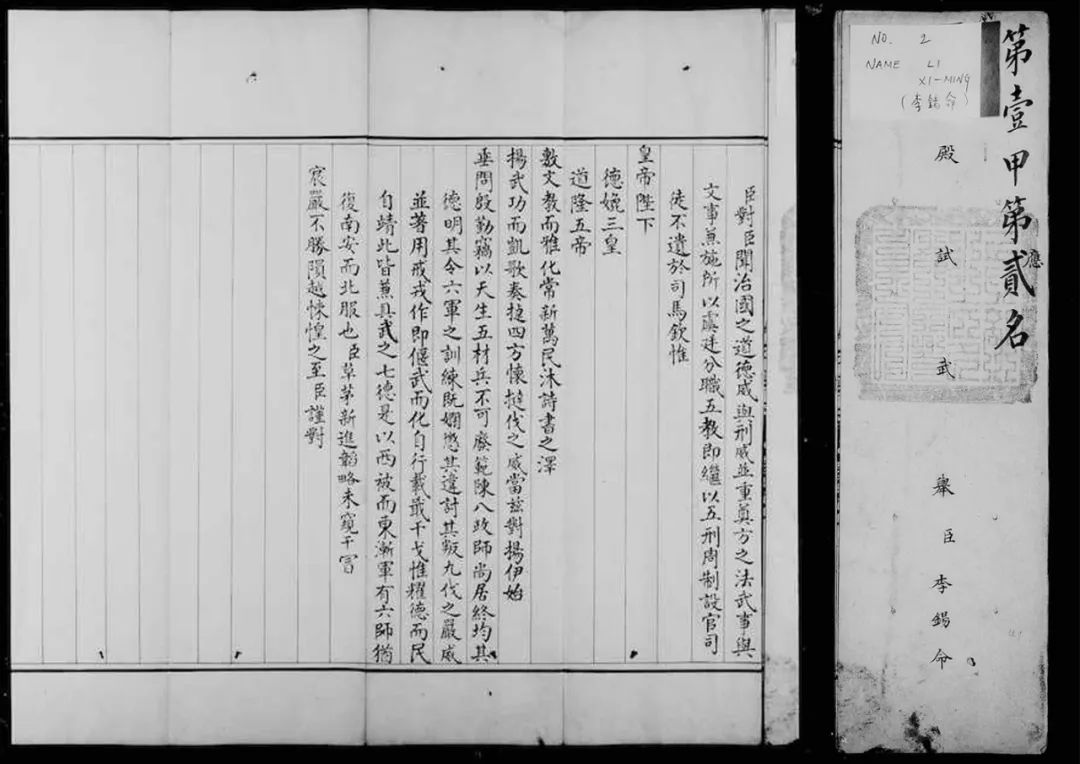 第壹甲第貳名
應
殿試武舉臣李錫命
NO. 2
NAME LI
XI-MING
(李錫命)
臣對臣聞治國之道德威與刑威並重奠方之法武事與
文事兼施所以虞廷分職五教即繼以五刑周制設官司
徒不遺於司馬欽惟
皇帝陛下
德媲三皇
道隆五帝
敷文教而雅化常新萬民沐詩書之澤
揚武功而凱歌奏捷四方懷撻伐之威當茲對揚伊始
垂問殷勤竊以天生五材兵不可廢範陳八政師尚居終均其
德明其令六軍之訓練既嫻懲其違討其叛九伐之嚴威
並著用戒戎作即偃武而化自行載戢干戈惟耀德而民
自靖此皆兼具武之七德是以西被而東漸軍有六師猶
復南安而北服也臣草茅新進韜略未窺干冒
宸嚴不勝隕越悚惶之至臣謹對